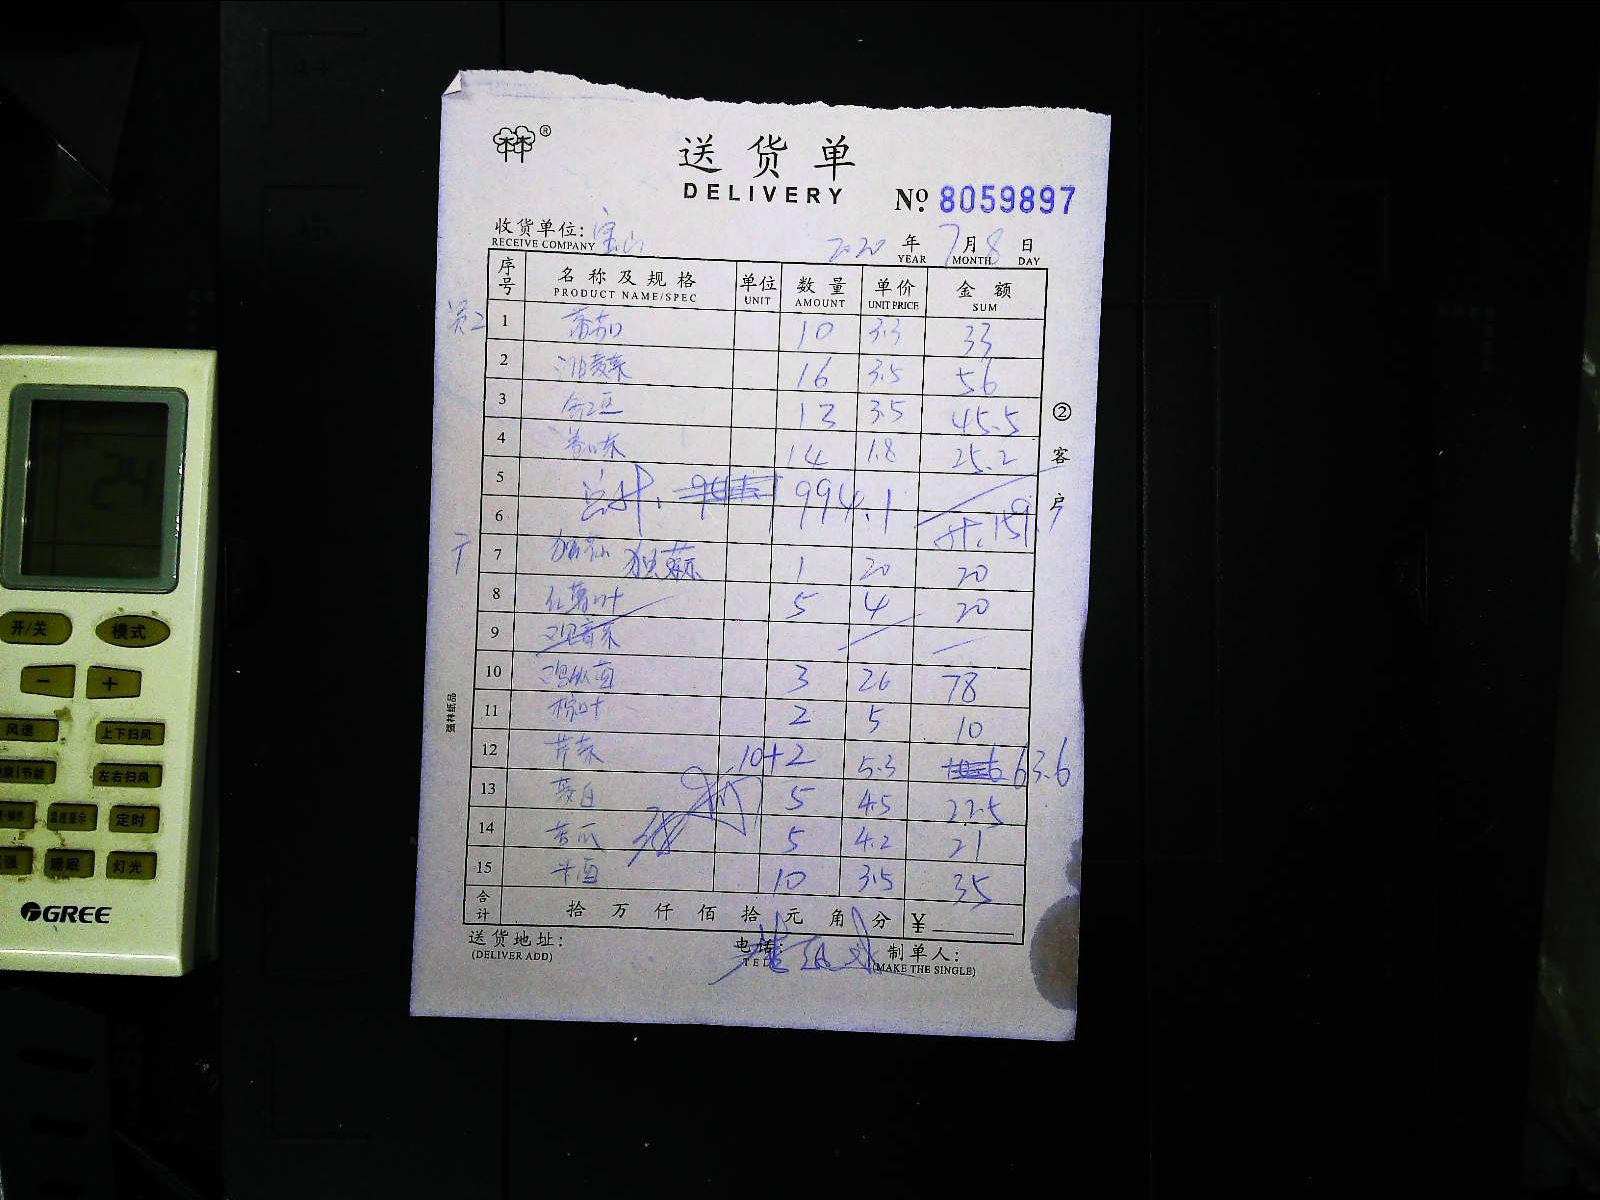 送货单
DELIVERY
№ 8059897
收货单位: 宝山
RECEIVE COMPANY
2020 年 7 月 8 日
YEAR MONTH DAY
序号 名称及规格 单位 数量 单价 金额
PRODUCT NAME/SPEC UNIT AMOUNT UNIT PRICE SUM
员工 1 蕃茄 10 3.3 33
2 油麦菜 16 3.5 56
3 13 3.5 45.5
4 14 1.8 25.2
5 总计: 994.1
6 计:159
7 1 20 20
8 红薯叶 5 4 20
9 观音菜
10 3 26 78
11 粽叶 2 5 10
12 芹菜 10+2 5.3 63.6
13 茭白 5 4.5 22.5
14 苦瓜 5 4.2 21
15 10 3.5 35
合计 拾 万 仟 佰 拾 元 角 分 ¥
送货地址:
(DELIVER ADD)
电话:
TEL
制单人:
(MAKE THE SINGLE)
②客户
强林纸品
开/关 模式
− +
风速 上下扫风
左右扫风
温度显示 定时
睡眠 灯光
GREE